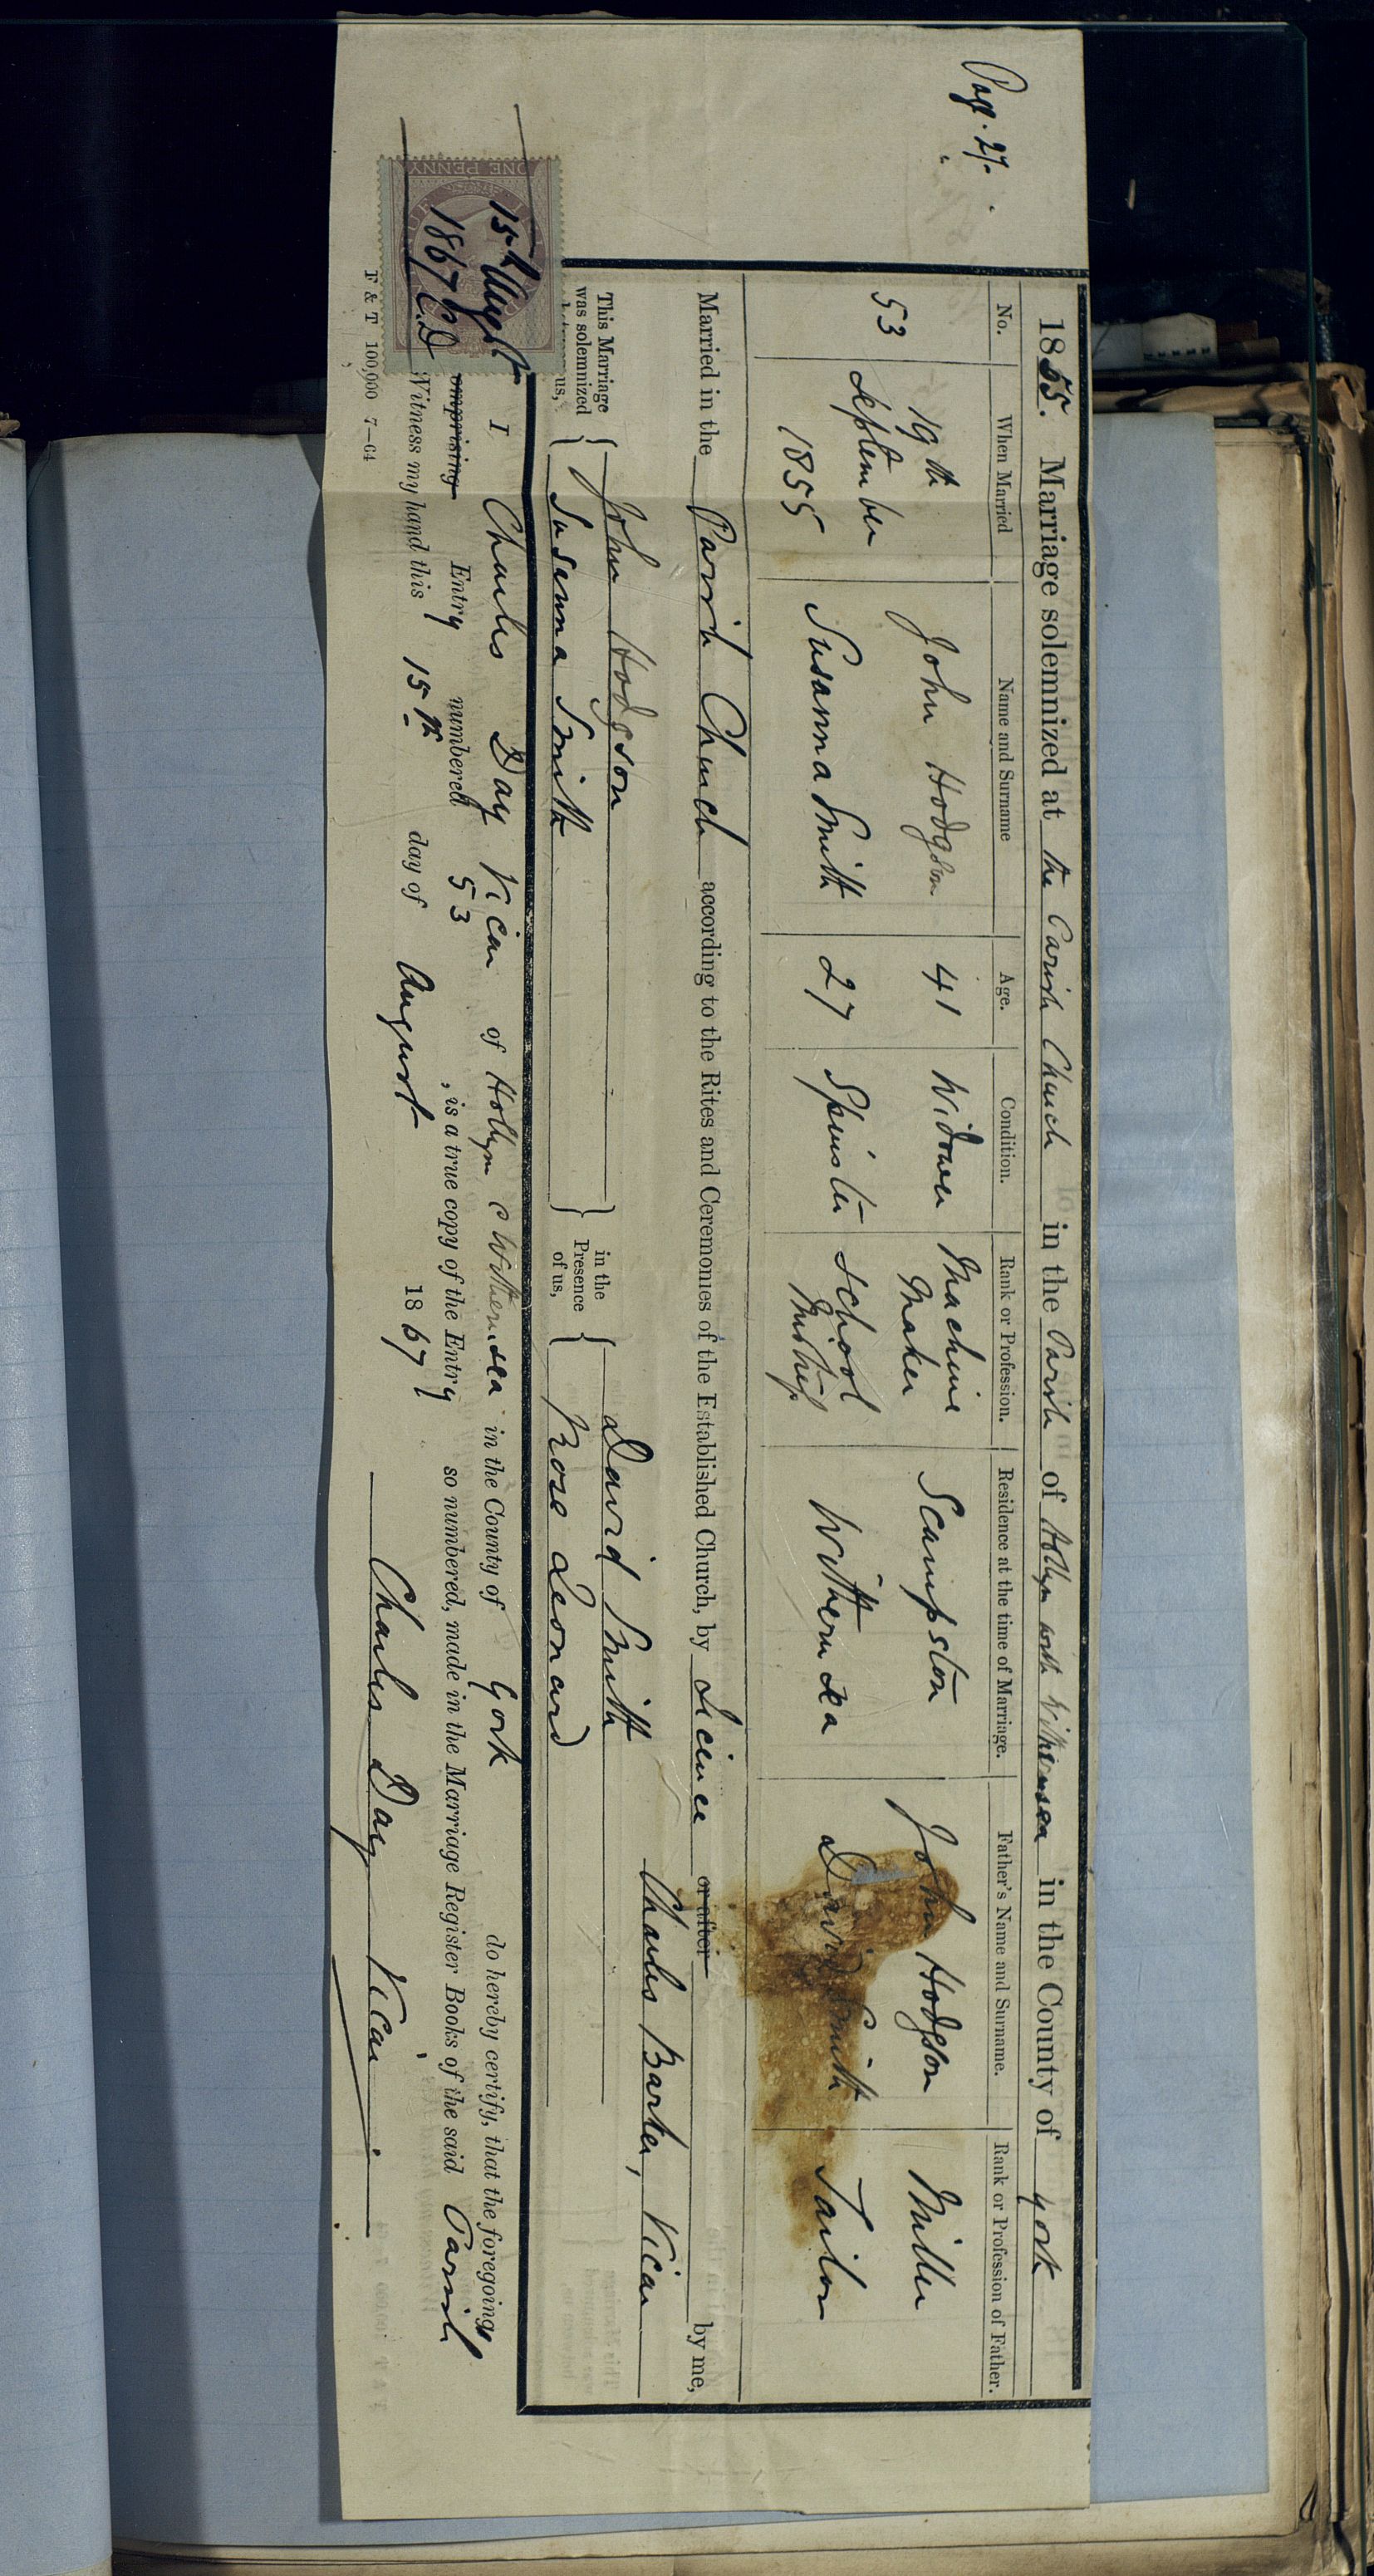 Page. 27.
1855. Marriage solemnized at the Parish Church in the Parish of Hollym with Withernsea in the County of York
No. When Married Name and Surname Age. Condition. Rank or Profession. Residence at the time of Marriage. Father's Name and Surname. Rank or Profession of Father.
53 19th September 1855 John Hodgson 41 Widower Machine Maker Scampston John Hodgson Miller
Susanna Smith 27 Spinster School Mistress Withernsea David Smith Tailor
Married in the Parish Church according to the Rites and Ceremonies of the Established Church, by Licence or after by me,
Charles Barker, Vicar
This Marriage was solemnized between us, John Hodgson in the Presence of us, David Smith
Susanna Smith Rose Leonard
I Charles Day Vicar of Hollym c Withernsea in the County of York do hereby certify, that the foregoing
omprising Entry numbered 53, is a true copy of the Entry so numbered, made in the Marriage Register Books of the said Parish
Witness my hand this 15th day of August 1867
Charles Day Vicar
ONE PENNY
15th Augst
1867 C.D
F & T 100,000 7—64